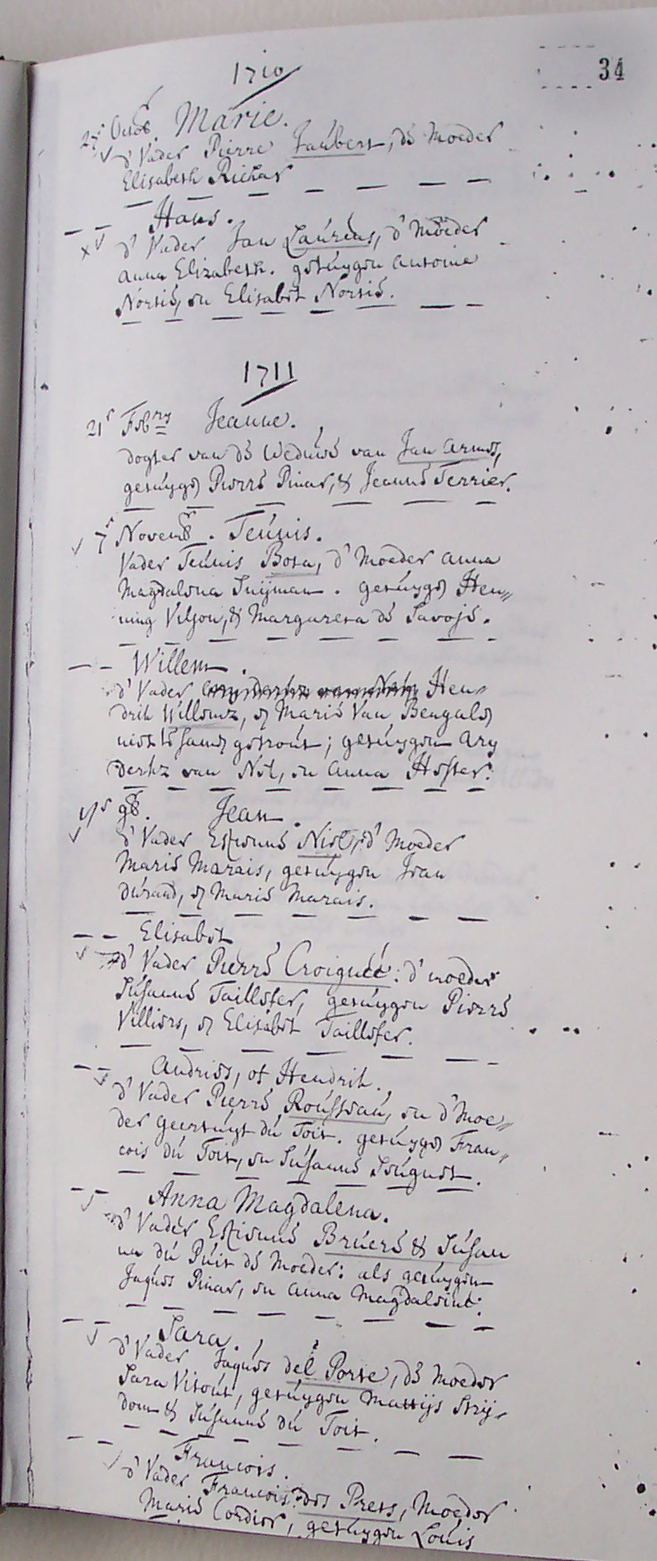 34
1710
27 Octob. Marie.
d' Vader Pierre Joubert, de Moeder
Elisabeth Richar
Hans.
d' Vader Jan Laurens, d' Moeder
Anna Elizabeth. getuygen Antoine
Nortie, en Elisabet Nortie.
1711
21 Febry Jeanne.
dogter van de Weduwe van Jan
getuyg Pierre Pinar, & Jeanne Terrier.
7 Novemb. Teunis.
Vader Teunis Bota, d' Moeder Anna
Magdalena Snijman. getuyg Hen„
ning Viljon, & Margareta de Savoje.
Willem.
d' Vader Hen„
drik Willemz, en Marie Van Bengale
niet te samen getrout; getuygen Ary
Derkz van Nol, en Anna Hofter.
Jean
d' Vader Estienne Niel, d' Moeder
Marie Marais, getuygen Jean
durand, en Marie Marais.
Elisabet
d' Vader Pierre Croignée: d' moeder
Susanne Taillefer, getuygen Pierre
Villiers, en Elisabet Taillefer.
Andries, of Hendrik.
d' Vader Pierre Rousseau, en d' Moe„
der geertruyt du Toit. getuyg Fran„
cois du Toit, en Susanne Seugnet.
Anna Magdalena.
d' Vader Estienne Bruere & Susan
na du Puit de Moeder: als getuygen
Jaques Pinar, en Anna Magdaleint.
Sara.
d' Vader Jaques del Porte, de Moeder
Sara Vitout, getuygen Mattijs Strij„
dom & Susanne du Toit.
Francois.
d' Vader Francois des Prets, Moeder
Marie Cordier, getuygen Louis